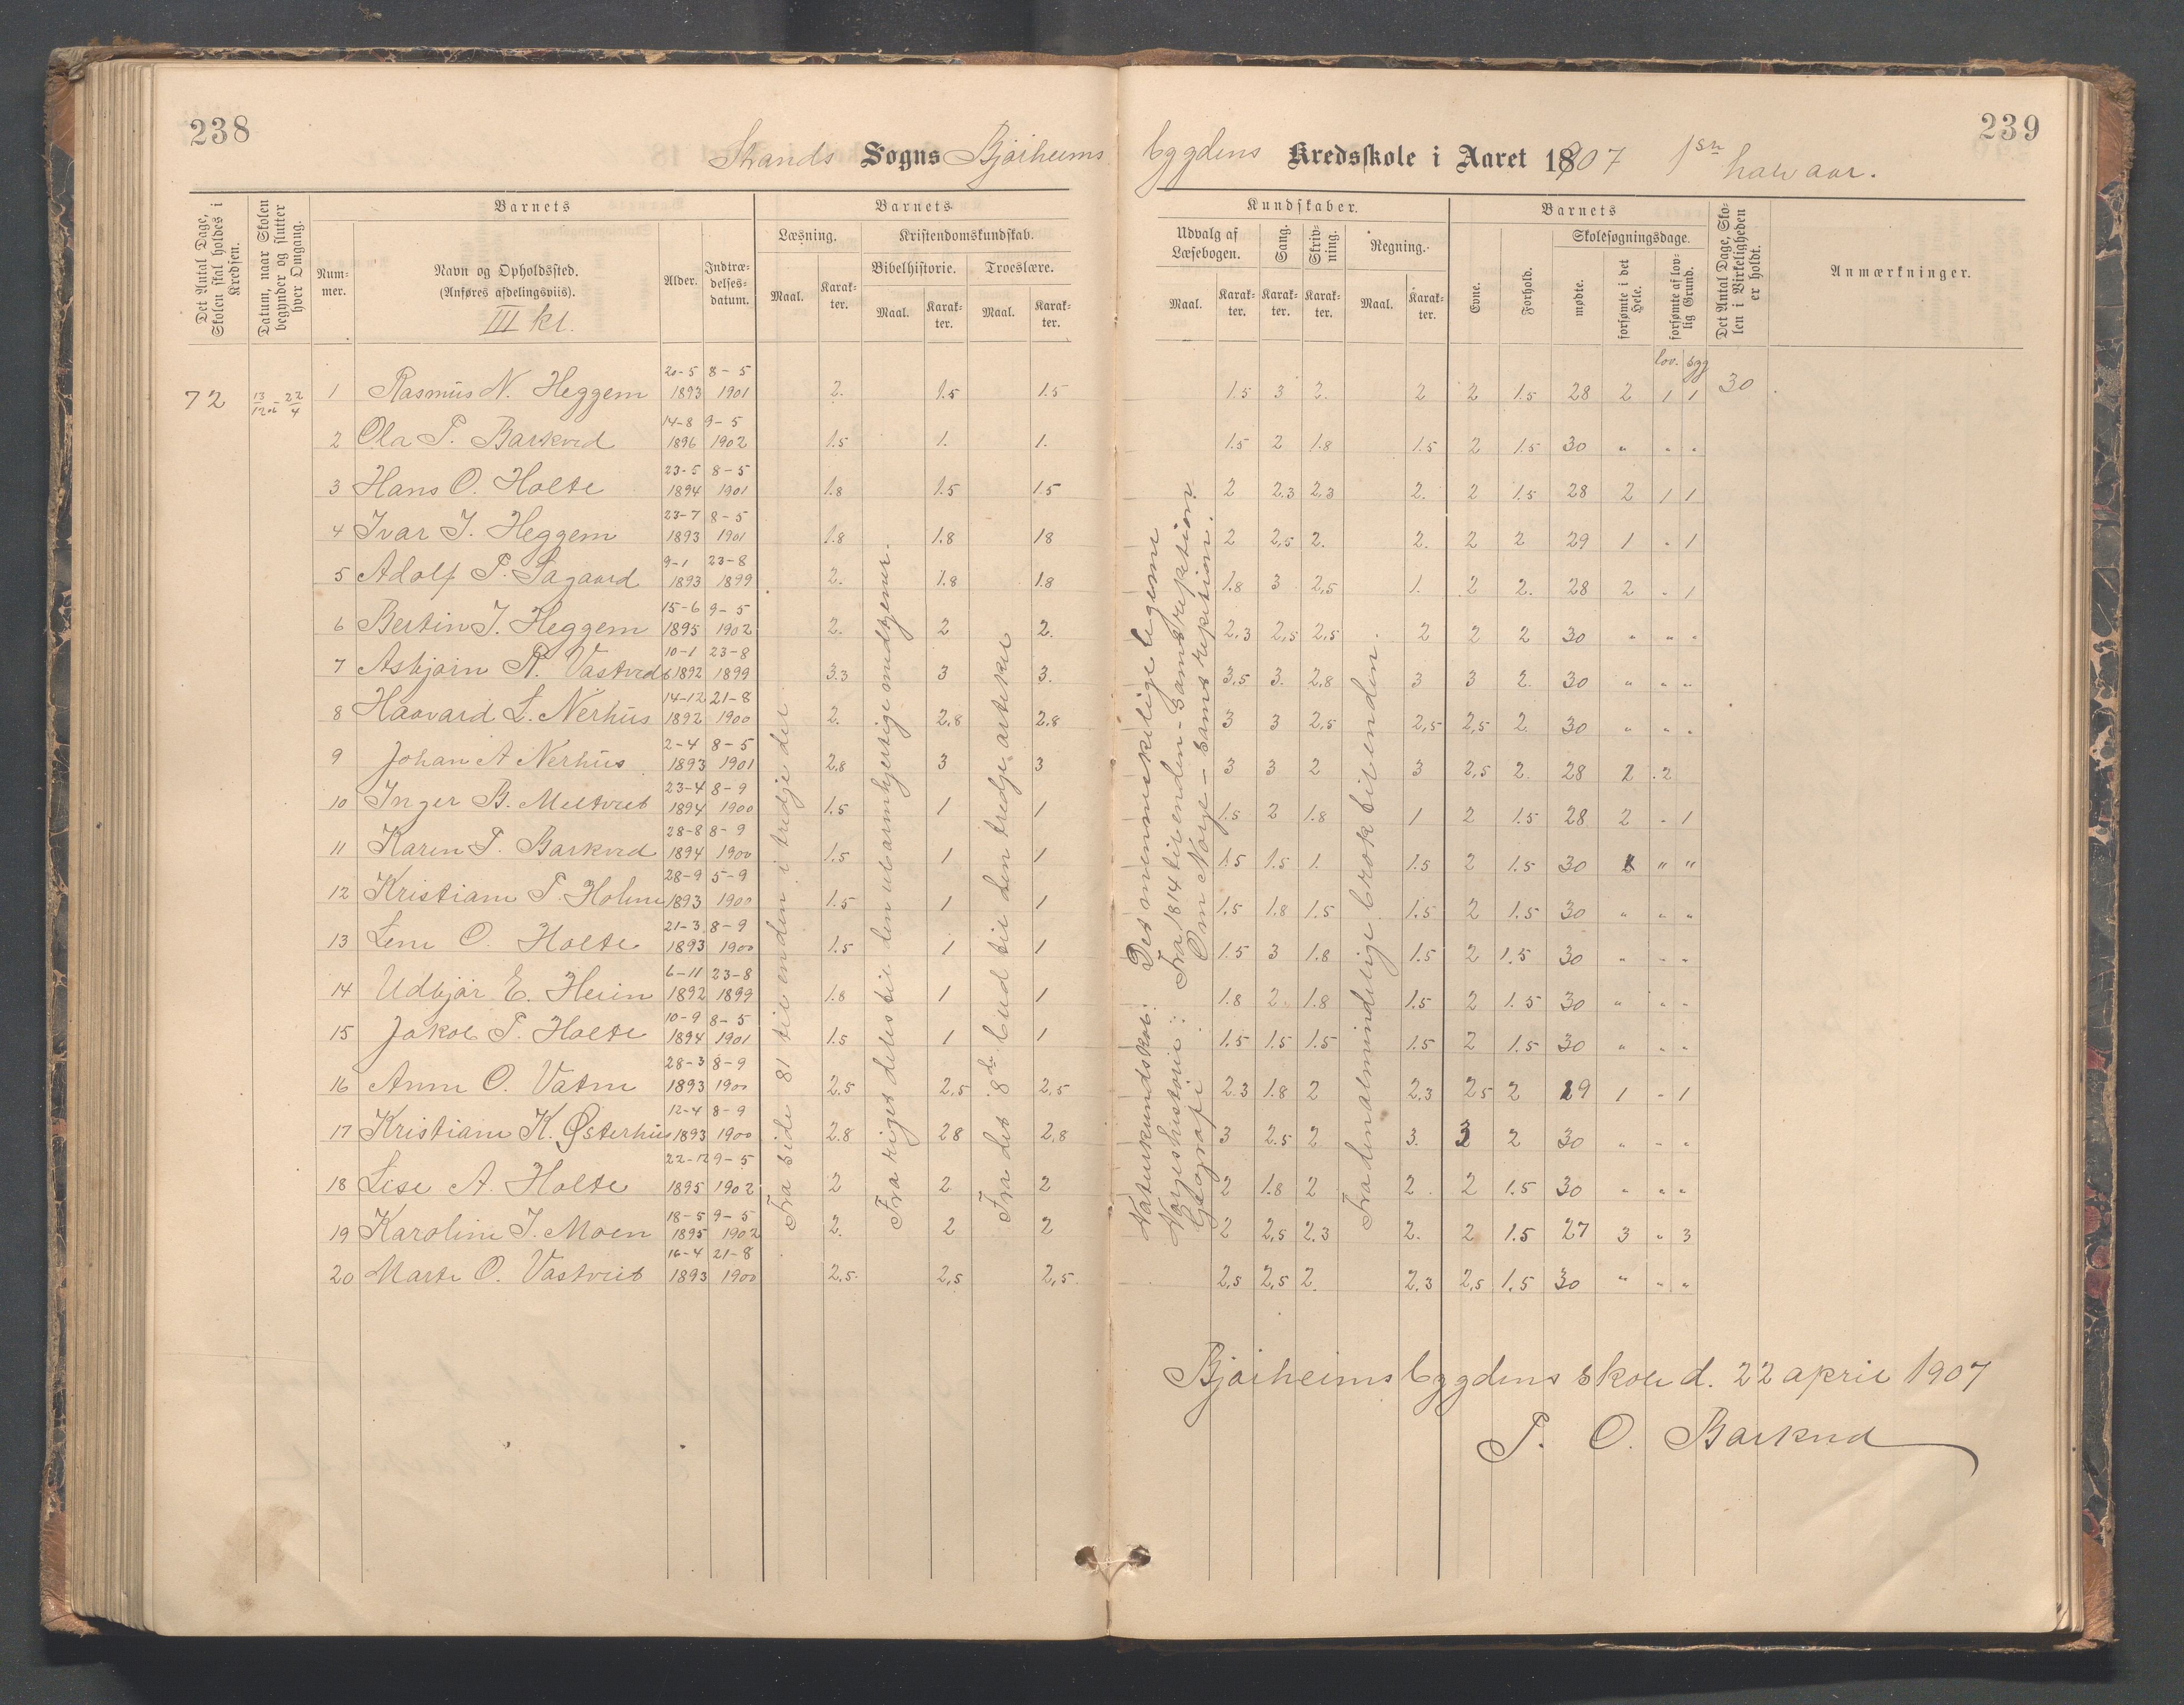 238
239
Strands Sogns Bjørheims bygdens Kredsskole i Aaret 1907 1ste halvaar.
Det Antal Dage, Skolen skal holdes i Kredsen.
Datum, naar Skolen begynder og slutter hver Omgang.
Barnets
Num-mer.
Navn og Opholdssted. (Anføres afdelingsviis).
III kl.
Alder.
Indtræ-delses-datum.
Barnets
Læsning.
Maal. Karak-ter.
Kristendomskundskab.
Bibelhistorie. Troeslære.
Maal. Karak-ter. Maal. Karak-ter.
Kundskaber.
Udvalg af Læsebogen. Sang. Skriv-ning. Regning.
Maal. Karak-ter. Karak-ter. Karak-ter. Maal. Karak-ter.
Barnets
Evne. Forhold.
Skolesøgningsdage.
mødte. forsømte i det Hele. forsømte af lov-lig Grund.
Det Antal Dage, Sko-len i Virkeligheden er holdt.
Anmærkninger.
lov. sgg
72 13/12 06 - 22/4 1 Rasmus N. Heggem 20-5 1893 8-5 1901 2. 1.5 1.5 1.5 3 2. 2 2 1.5 28 2 1 1 30
2 Ola T. Barkved 14-8 1896 9-5 1902 1.5 1. 1. 1.5 2 1.8 1.5 2 1.5 30 " " "
3 Hans O. Holte 23-5 1894 8-5 1901 1.8 1.5 1.5 2 2.3 2.3 2. 2 1.5 28 2 1 1
4 Ivar J. Heggem 23-7 1893 8-5 1901 1.8 1.8 18 2 2,5 2. 2. 2 2 29 1 " 1
5 Adolf T. Sagaard 9-1 1893 23-8 1899 2. 1.8 1.8 1.8 3 2,5 1. 2 2. 28 2 " 1
6 Bertin J. Heggem 15-6 1895 9-5 1902 2. 2 2. 2,3 2,5 2,5 2 2 2 30 " " "
7 Asbjørn R. Vastved 10-1 1892 23-8 1899 3.3 3 3. 3,5 3. 2,8 3 3 2. 30 " " "
8 Haavard L. Nerhus 14-12 1892 21-8 1900 2. 2.8 2.8 3 3 2,5 2,5 2,5 2. 30 " " "
9 Johan A Nerhus 2-4 1893 8-5 1901 2,8 3 3 3 3 2 3 2,5 2. 28 2 . 2
10 Inger B. Meltveit 23-4 1894 8-9 1900 1.5 1 1 1.5 2 1.8 1 2 1.5 28 2 " 1
11 Karen T. Barkved 28-8 1894 8-9 1900 1.5 1 1 1.5 1.5 1. 1.5 2 1.5 30 " "
12 Kristiane T. Holme 28-9 1893 5-9 1900 1.5 1 1 1.5 1.8 1.5 1.5 2 1.5 30 " " "
13 Lene O. Holte 21-3 1893 8-9 1900 1.5 1 1 1.5 3 1.8 1.5 2 1.5 30 " " "
14 Udbjør E. Heien 6-11 1892 23-8 1899 1.8 1 1 1.8 2. 1.8 1.5 2 1.5 30 " " "
15 Jakob T. Holte 10-9 1894 8-5 1901 1.5 1 1 1.5 1.5 1.5 1.5 2 1.5 30 " " "
16 Anne O. Vatne 28-3 1893 8-9 1900 2.5 2,5 2,5 2.3 1.8 2 2,3 25 2 29 1 " 1
17 Kristiane K. Østerhus 12-4 1893 8-9 1900 2.8 28 2,8 3 2.5 2 3. 3 2 30 " " "
18 Lise A. Holte 22-12 1895 9-5 1902 2 2 2 2 1.8 2 2 2 1.5 30 " " "
19 Karoline J. Moen 18-5 1895 9-5 1902 2. 2 2 2 2,5 2.3 2. 2 1.5 27 3 " 3
20 Marte O. Vastveit 16-4 1893 21-8 1900 2,5 2,5 2,5 2,5 2,5 2. 2,3 2,5 1.5 30 " " "
Fra side 81 til enden i tredje del
Fra riget deles til den ubarmhjertige medtjener.
Fra det 8de bud til den tredje artikel
Naturkundskab: Det menneskelige legeme
Norgeshistorie: Fra 1814 til enden - Samt repetition
Geografi Om Norge - Samt repetition.
Fra den almindelige brøk til enden
Bjørheimsbygdens skole d. 22 april 1907
T. O. Barkved